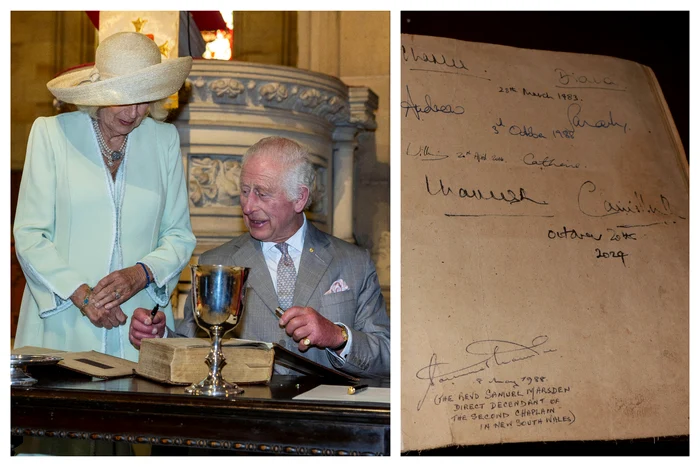 Charles Diana
28th March 1983.
Andrew Sarah.
1st October 1988
William 20th April 2014 Catherine.
Charles R Camilla R
October 20th
2024
8 May 1988
(THE REVD SAMUEL MARSDEN
DIRECT DECENDANT OF
THE SECOND CHAPLAIN
IN NEW SOUTH WALES)